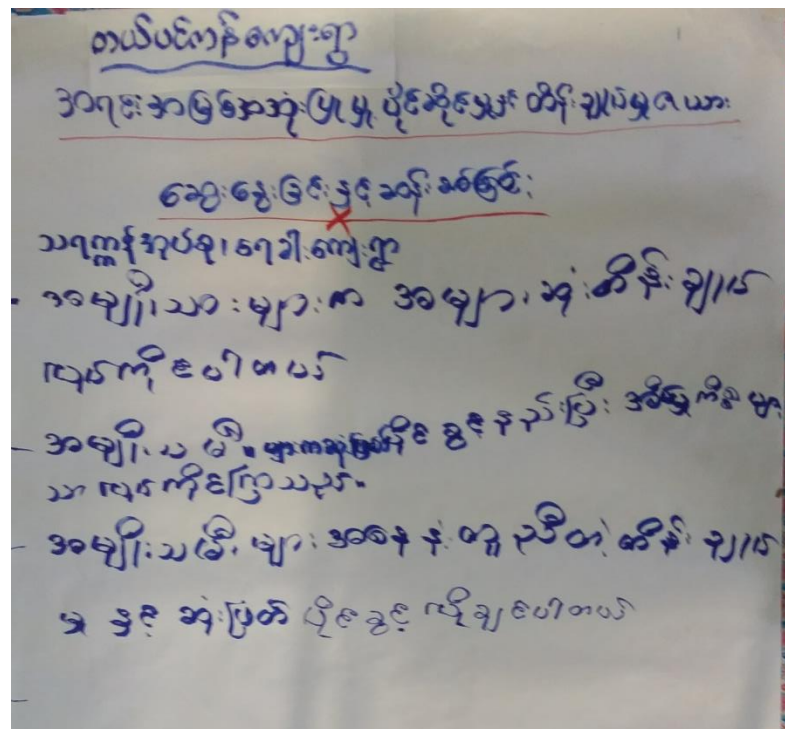 တယ်ပင်ကန်ကျေးရွာ
အရင်းအမြစ်အသုံးပြုမှု ပိုင်ဆိုင်မှုနှင့် ထိန်းချုပ်မှုဇယား
ဆွေးနွေးခြင်းနှင့်ဆန်းစစ်ခြင်း
သရက္ကန်အုပ်စု၊ ရေခါးကျေးရွာ
အမျိုးသားများက အများဆုံးထိန်းချုပ်
လုပ်ကိုင်ပါတယ်
- အမျိုးသမီးများကဆုံးဖြတ်ပိုင်ခွင့်နည်းပြီး အိမ်မှုကိစ္စများ
သာလုပ်ကိုင်ကြသည်။
- အမျိုးသမီးများအနေနဲ့ တူညီတဲ့ ထိန်းချုပ်
မှုနှင့် ဆုံးဖြတ်ပိုင်ခွင့်လိုချင်ပါတယ်
-